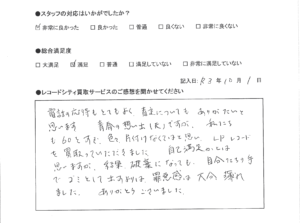 ●スタッフの対応はいかがでしたか?
☑非常に良かった □良かった □普通 □良くない □非常に良くない
●総合満足度
□大満足 ☑満足 □普通 □満足していない □非常に満足していない
記入日: R3年10月1日
●レコードシティ買取サービスのご感想を聞かせてください
電話の応待もとてもよく 査定についても ありがたいと
思います 青春の想い出(大)ですが、私たち
も60とすぎ、色々片付けなくてはと思い LPレコード
を買取っていただきました 自己満足かとは
思いますが、 破棄になっても、自分たちの手
でゴミとして出すよりは 罪悪感は 大分 薄れ
ました。 ありがとうございました。